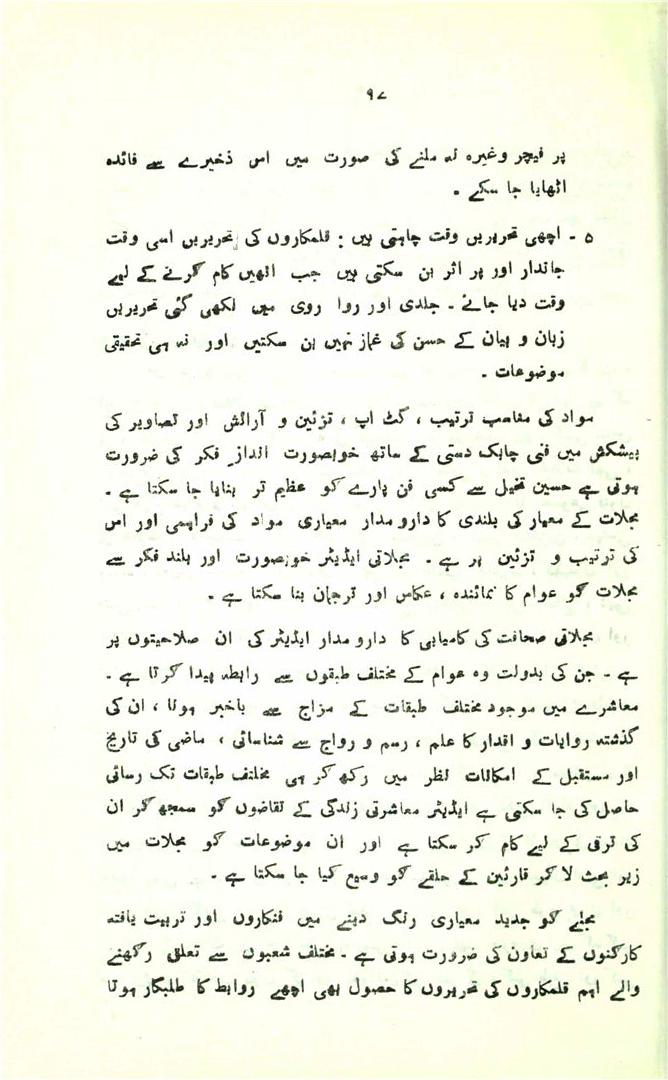 ۹۷
پر فیچر وغیرہ نہ ملنے کی صورت میں اس ذخیرے سے فائدہ
اٹھایا جا سکے ۔
۵ ۔ اچھی تحریریں وقت چاہتی ہیں : قلمکاروں کی تحریریں اسی وقت
جاندار اور پر اثر بن سکتی ہیں جب انھیں کام کرنے کے لیے
وقت دیا جائے ۔ جلدی اور روا روی میں لکھی گئی تحریریں
زبان و بیان کے حسن کی غماز نہیں بن سکتیں اور نہ ہی تحقیقی
موضوعات ۔
مواد کی مناسب ترتیب ، گٹ اپ ، تزئین و آرائش اور تصاویر کی
پیشکش میں فنی چابک دستی کے ساتھ خوبصورت اندازِ فکر کی ضرورت
ہوتی ہے حسین تخیل سے کسی فن پارے کو عظیم تر بنایا جا سکتا ہے ۔
مجلات کے معیار کی بلندی کا دارومدار معیاری مواد کی فراہمی اور اس
کی ترتیب و تزئین پر ہے ۔ مجلاتی ایڈیٹر خوبصورت اور بلند فکر سے
مجلات کو عوام کا نمائندہ ، عکاس اور ترجمان بنا سکتا ہے ۔
مجلاتی صحافت کی کامیابی کا دارو مدار ایڈیٹر کی ان صلاحیتوں پر
ہے ۔ جن کی بدولت وہ عوام کے مختلف طبقوں سے رابطہ پیدا کرتا ہے ۔
معاشرے میں موجود مختلف طبقات کے مزاج سے باخبر ہونا ، ان کی
گذشتہ روایات و اقدار کا علم ، رسم و رواج سے شناسائی ، ماضی کی تاریخ
اور مستقبل کے امکانات نظر میں رکھ کر ہی مختلف طبقات تک رسائی
حاصل کی جا سکتی ہے ایڈیٹر معاشرتی زندگی کے تقاضوں کو سمجھ کر ان
کی ترقی کے لیے کام کر سکتا ہے اور ان موضوعات کو مجلات میں
زیر بحث لا کر قارئین کے حلقے کو وسیع کیا جا سکتا ہے ۔
مجلے کو جدید معیاری رنگ دینے میں فنکاروں اور تربیت یافتہ
کارکنوں کے تعاون کی ضرورت ہوتی ہے ۔ مختلف شعبوں سے تعلق رکھنے
والے اہم قلمکاروں کی تحریروں کا حصول بھی اچھے روابط کا طلبگار ہوتا